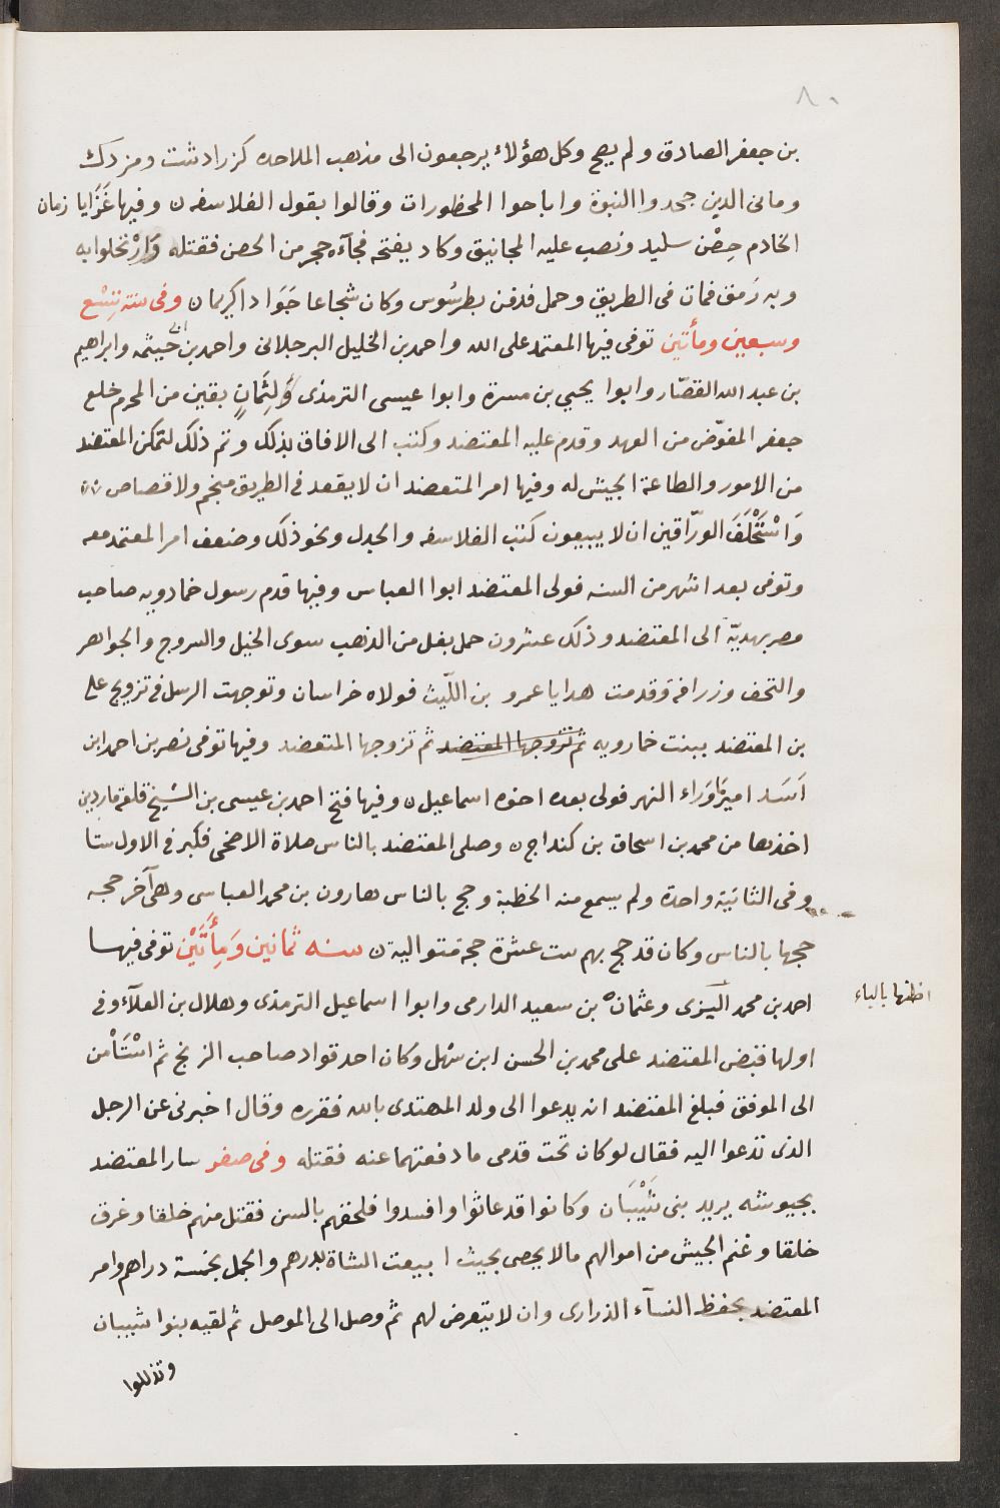 ٨٠
بن جعفر الصادق ولم يصح وكل هؤلاء يرجعون الى مذهب الملاحده كزرادشت ومزدك
ومانى الدين جحدوا النبوة واباحوا المحظورات وقالوا بقول الفلاسفه ن وفيها غَزَايا زمان
الخادم حِصْن سليد ونصب عليه المجانيق وكاد يفتحه فجآءه حجر من الحصن فقتله وَارْتحلوا به
وبه رَمق فمات فى الطريق وحمل فدفن بطرسُوس وكان شجاعا جَوَادا كريما ن وفى سنة تِسْع
وسبعين ومأتين توفى فيها المعتمد على الله واحمد بن الخليل البرجلانى واحمد بن ابى خيثمه وابراهيم
بن عبد الله القصّار وابوا يحيى بن مسرة وابوا عيسى الترمذى وَلِثَمانٍ بقين من المحرم خلع
جعفر المفوّض من العهد وقدم عليه المعتضد وكتب الى الافاق بذلك وتم ذلك لتمكن المعتضد
من الامور والطاعة الجيش له وفيها امر المتعضد ان لا يقعد فى الطريق منجم ولا قصاص ن
وَاسْتَحْلَفَ الورّاقين ان لا يبيعون كتب الفلاسفه والجدل ونحو ذلك وضعف امر المعتمد معه
وتوفى بعد اشهر من السنه فولى المعتضد ابوا العباس وفيها قدم رسول خمارويه صاحب
مصر بهديّة الى المعتضد وذلك عشرون حمل بغل من الذهب سوى الخيل والسروج والجواهر
والتحف وزرافة وقدمت هدايا عمرو بن اللّيث فولاه خراسان وتوجهت الرسل فى تزويج على
بن المعتضد ببنت خمارويه ثم تزوجها المعتضد ثم تزوجها المتعضد وفيها توفى نصر بن احمد ابن
اَسَد امير مَاوَراء النهر فولى بعده اخوه اسماعيل ن وفيها فتح احمد بن عيسى بن الشيخ قلعة ماردين
اخذها من محمد بن اسحاق بن كنداج ن وصلى المعتضد بالناس صلاة الاضحى فكبر فى الاول ستا
وفى الثانية واحدة ولم يسمع منه الخطبة وحج بالناس هارون بن محمد العباسى وهى آخر حجه
حجها بالناس وكان قد حج بهم ست عشرة حجة متواليه ن سنه ثمانين وَمِأتَيْن توفى فيها
احمد بن محمد اليزى وعثمان بن سعيد الدارمى وابوا اسماعيل الترمذى وهلال بن العلآء وفى
اظنها بالياء
اولها قبض المعتضد على محمد بن الحسن ابن سهل وكان احد قواد صاحب الزنج ثم اسْتَاْمن
الى الموفق فبلغ المعتضد انه يدعوا الى ولد المهتدى بالله فقرره وقال اخبرنى عن الرجل
الذى تدعوا اليه فقال لو كان تحت قدمى ما دفعتهما عنه فقتله وفى صفر سار المعتضد
بجيوشه يريد بنى شَيْبَان وكانوا قد عاثوا وافسدوا فلحقهم بالسن فقتل منهم خلقا وغرق
خلقا وغنم الجيش من اموالهم مالا يحصى بحيث ابيعت الشاة بدرهم والجمل بخمسة دراهم وامر
المعتضد بحفظ النسآء الذرارى وان لا يتعرض لهم ثم وصل الى الموصل ثم لقيه بنوا شيبان
وتذللوا